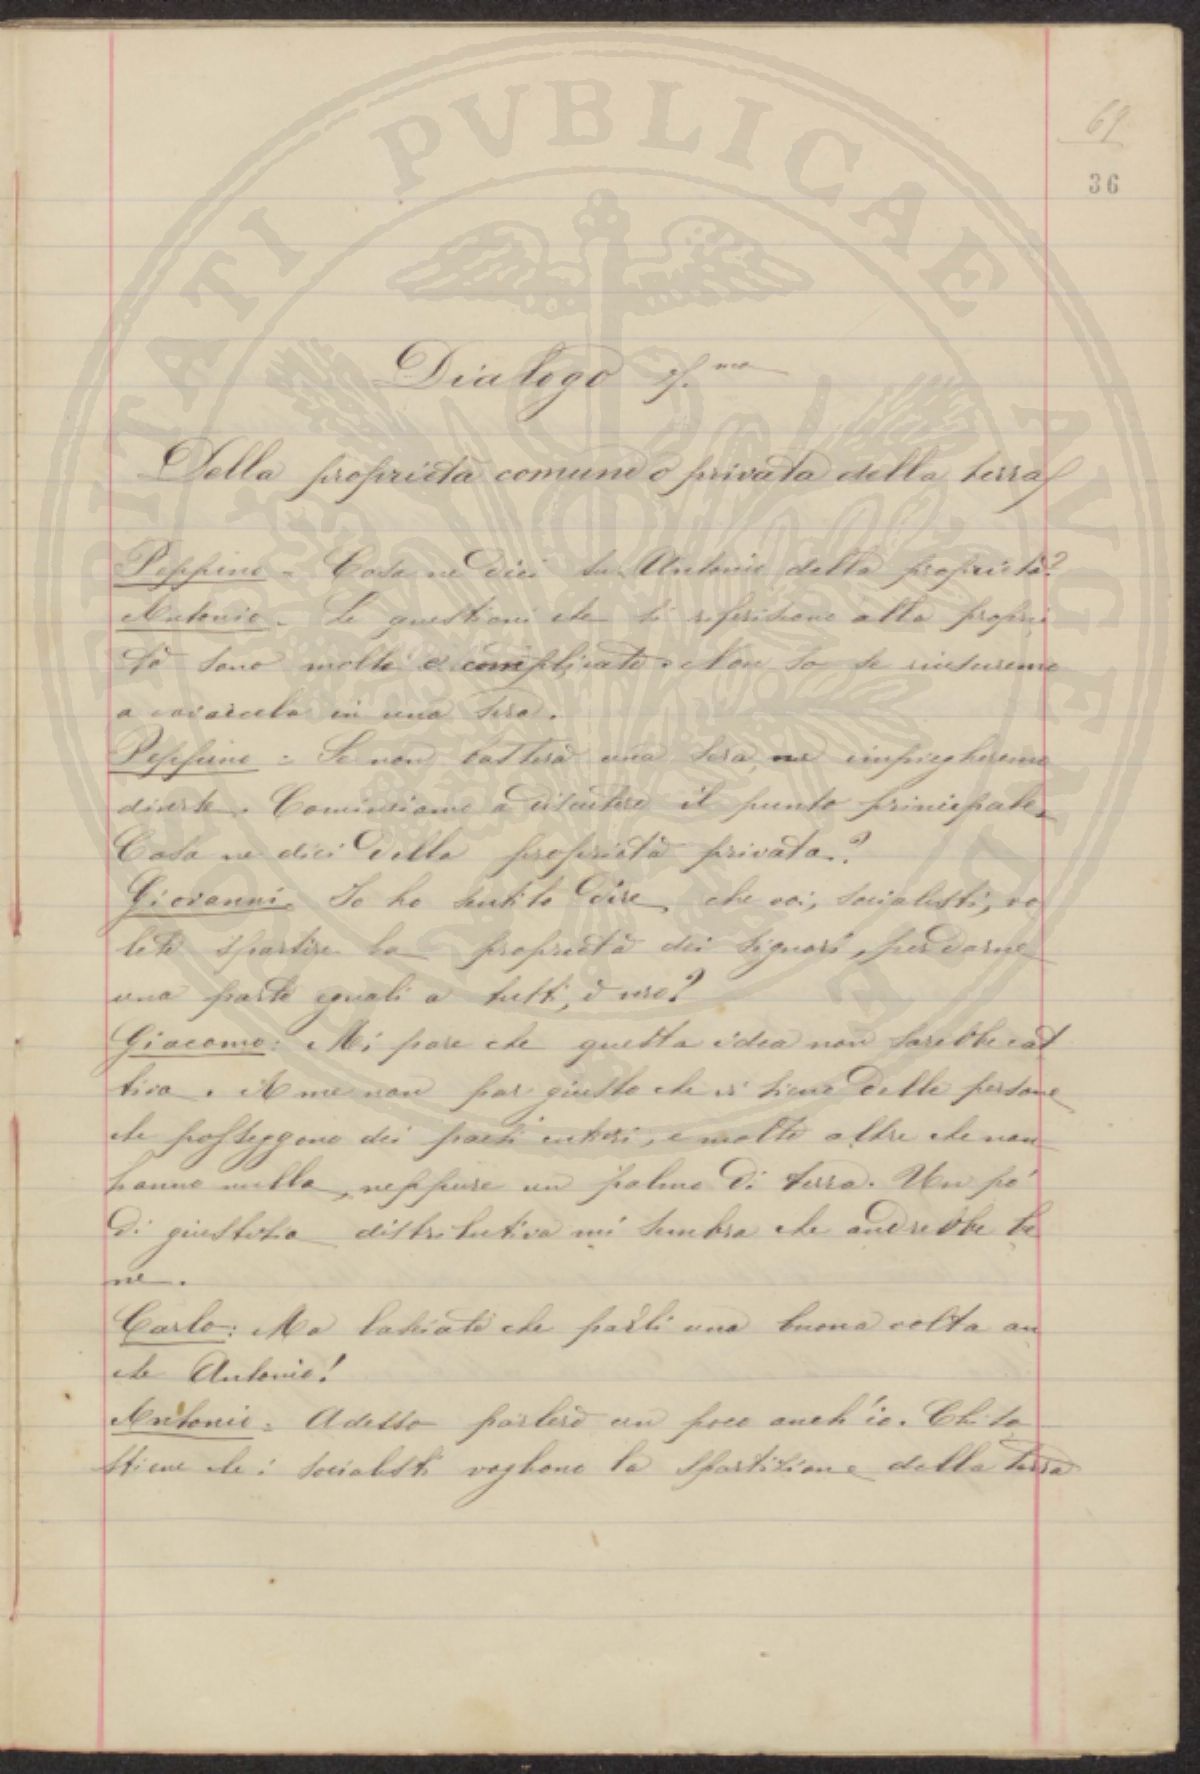 69
36
Dialogo
Della proprietà comune o privata della terra
Peppino - Cosa ne dici tu Antonio della proprietà?
Antonio - Le questioni che si riferiscono alla proprie
tà sono molte e complicate. Non so se riusciremo
a cavarcela in una sera.
Peppino - Se non basterà una sera ne impiegheremo
diverse. Cominciamo a discutere il punto principale.
Cosa ne dici della proprietà privata?
Giovanni - Io ho sentito dire che voi, socialisti, vo
lete spartire la proprietà dei signori, per darne
una parte eguali a tutti, è vero?
Giacomo: Mi pare che questa idea non sarebbe cat
tiva. A me non par giusto che vi siano delle persone
che posseggono dei paesi interi, e molte altre che non
hanno nulla, neppure un palmo di terra. Un po'
di giustizia distributiva mi sembra che andrebbe be
ne.
Carlo: Ma lasciate che parli una buona volta an
che Antonio!
Antonio - Adesso parlerò un poco anch'io. Chi so
stiene che i socialisti vogliono la spartizione della terra
PVBLICAE